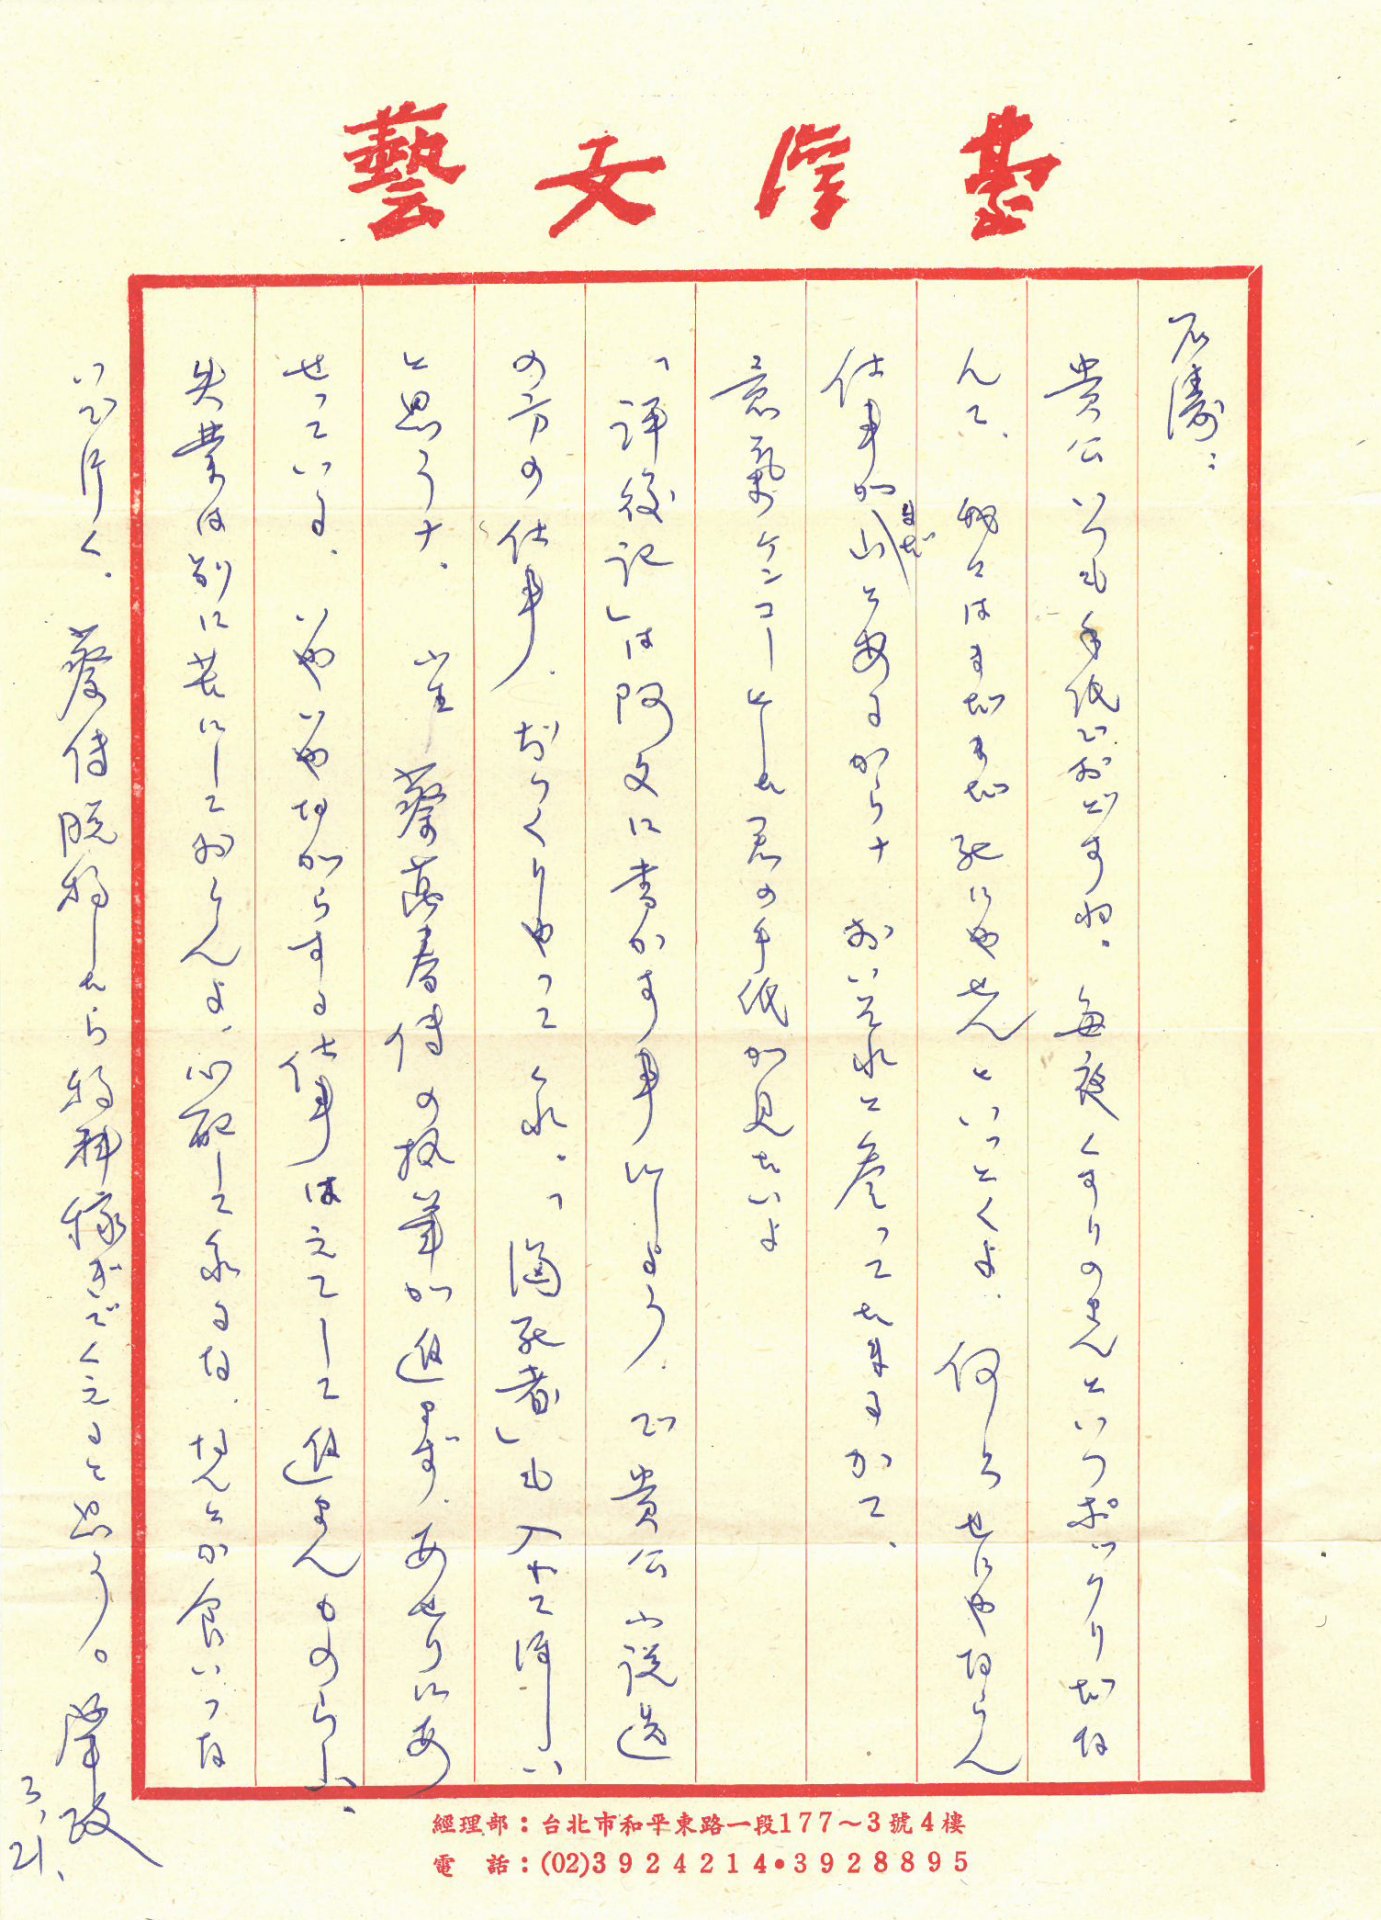 臺灣文藝
石濤：
貴公いつも手紙でおどすね。毎夜くすりのせんといつポックリだな
んて、我々はまだまだ死にやせんといっとくよ。何しろせにゃならん
仕事がまだ山とあるからナ おいそれと参ってたまるかて、
意気ケンコーとした君の手紙が見たいよ
「評後記」は阿文に書かす事にしよう。で貴公小説選
の方の仕事、おらくしやって くれ。「溺死者」も入れてほしい
と思うナ。 蔡萬春伝の執筆が進まず、あせりにあ
せっている。いやいやながらする仕事はえてして進まんものらしい、
失業は別に苦にしておらんよ、心配してくれるな、なんとか食いつな
いで行く。蔡伝脱稿したら稿料稼ぎでくえると思う。肇政
3、21、
經理部：台北市和平東路一段177～3號4樓
電　話：(02)3924214•3928895